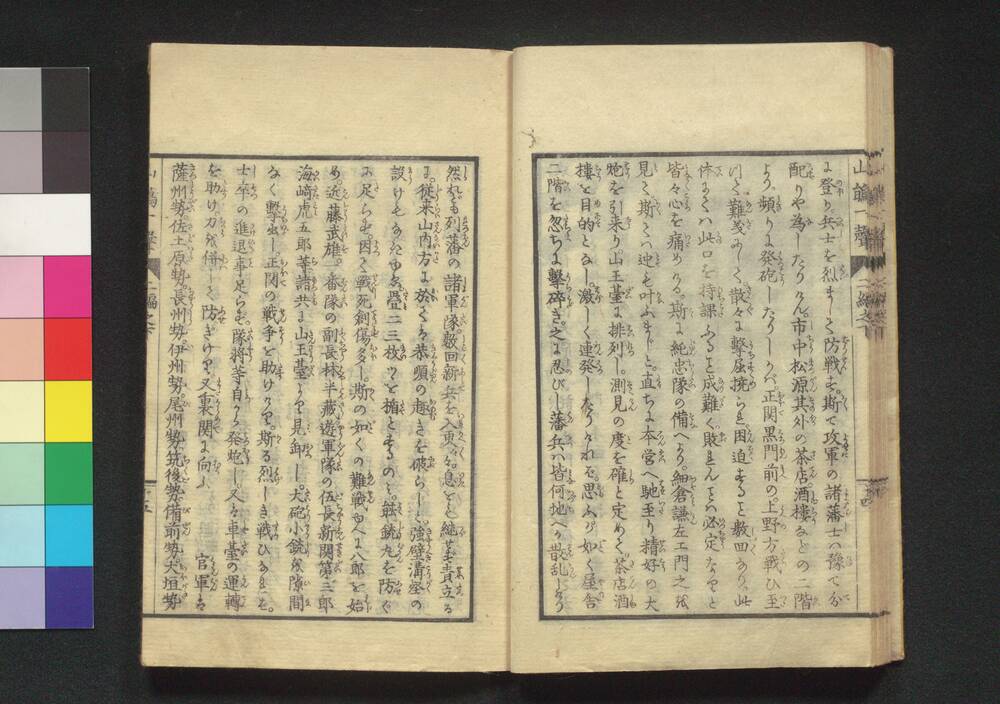 に登り兵士を烈まして防戦す。斯て攻軍の諸藩士は豫て分
配りや為したりけん。市中松源其外の茶店酒樓などの二階
より。頻りに発砲したりしかバ。正門黒門前の上野方戦ひ至
つて難義にして散々に撃屈撓られ困迫すること数回あり。此
体にてハ此口を持課ふること成難く敗れんことハ必定なりと
皆々心を痛めける。斯に純忠隊の備へなる。細倉謙左エ門之を
見て。斯てハ迚も叶ふまじと直ちに本営へ馳至り精好の大
炮を引来り山王臺に排列し。測見の度を確と定めて茶店酒
樓を目的となし激しく連発したりけれバ。思ふが如く屋舎
二階を忽ちに撃碎き。之に忍びし藩兵ハ皆何地へか散乱しけり
然れども列藩の諸軍隊。数回新兵を入更へ々。息をも継せず責立る
に。従来山内方に於てハ恭順の趣きを破らじと強壁溝塁の
設けもあらざれば疊二三枚づゝを楯とするのミ。銃丸を防ぐ
に足らず。因て戦死創傷多し。斯の如くの難戦ゆへ八郎を始
め近藤武雄。一番隊の副長林半藏遊軍隊の伍長新関第三郎
海﨑虎五郎等諸共に山王堂より見卸し。大砲小銃の隙間
なく撃出し正門の戦争を助けけり。斯る烈しき戦ひなれバ。
士卒の進退事足らず。隊将等自から発炮し。又ハ車臺の運轉
を助け力を併して防ぎけり又裏門に向ふ官軍は
薩州勢佐土原勢。長州勢。伊州勢。尾州勢。筑後勢。備前勢。大垣勢